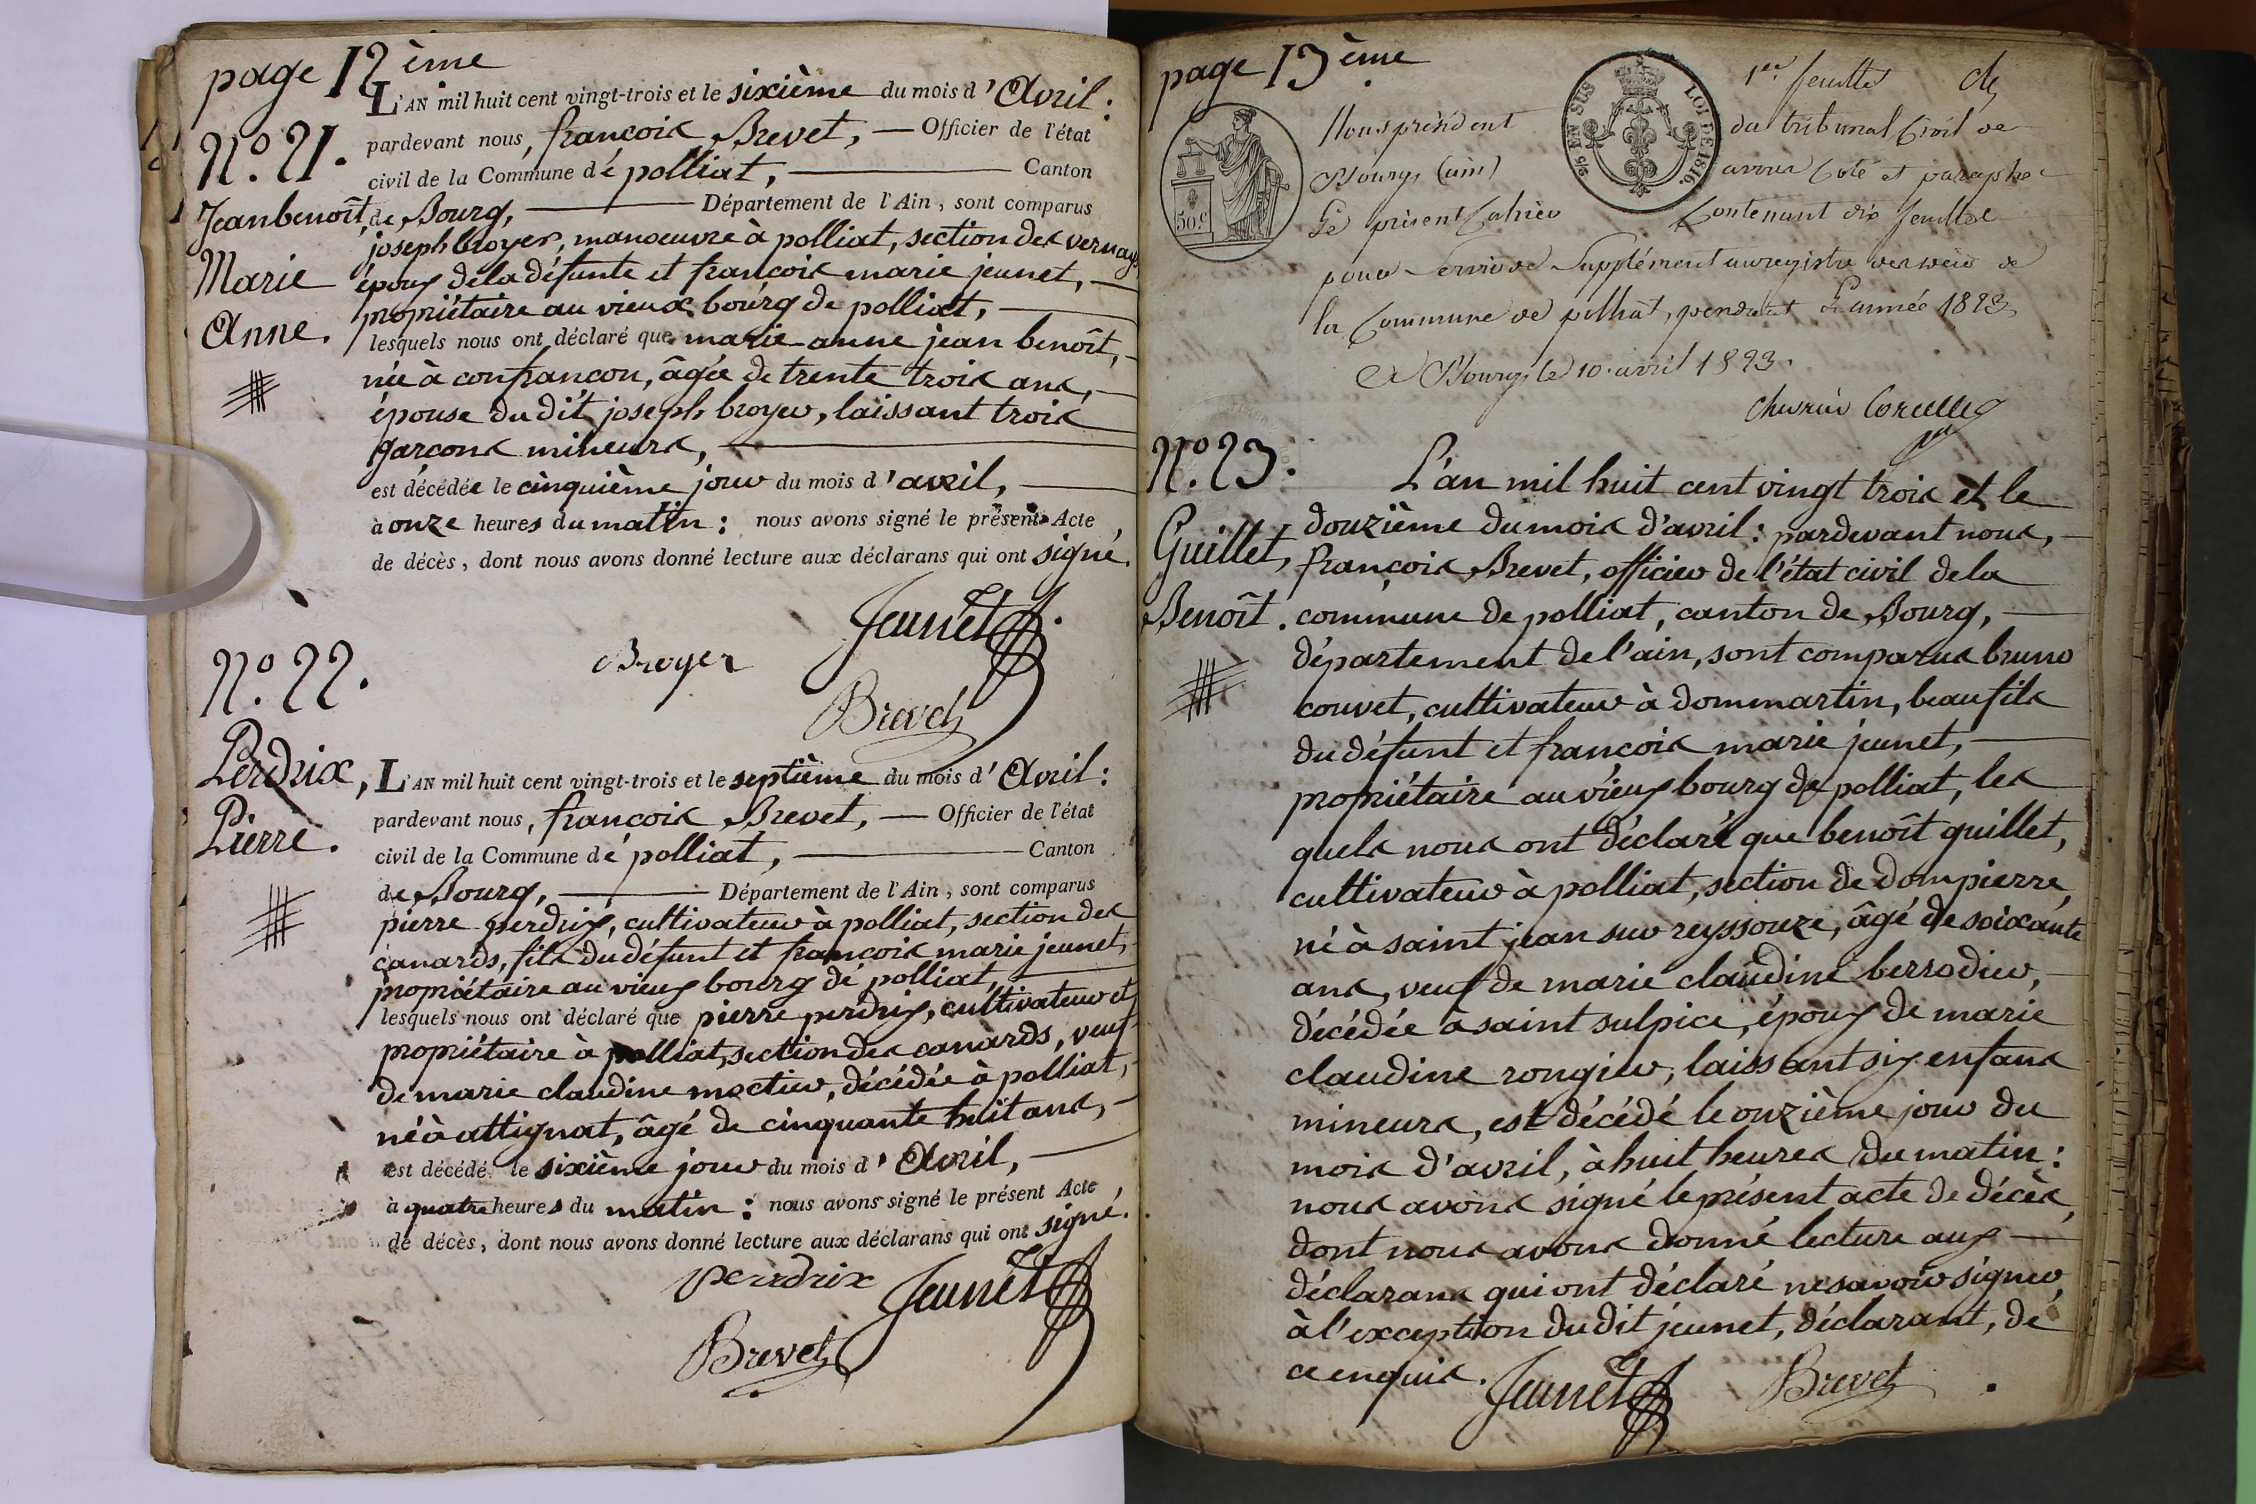 page 12 ème
L'AN mil huit cent vingt-trois et le sixième du mois d'Avril :
N.o 21.
pardevant nous, françois Brevet, — Officier de l'état
civil de la Commune dé polliat, — Canton
Jeanbenoît,
de Bourg, — Département de l'Ain, sont comparus
joseph broyer, manoeuvre à polliat, section des vernays
Marie
époux de la défunte et françois marie jeunet, —
propriétaire au vieux bourg de polliat, —
Anne.
lesquels nous ont déclaré que marie anne jean benoît, -
née à confrançon, âgée de trente trois ans, -
épouse du dit joseph broyer, laissant trois
garçons mineurs, —
est décédée le cinquième jour du mois d'avril, —
à onze heures du matin : nous avons signé le présent Acte
de décès, dont nous avons donné lecture aux déclarans qui ont signé.
Jeunet
Broyer
Brevet
N.o 22.
Perdrix,
L'AN mil huit cent vingt-trois et le septième du mois d'Avril :
pardevant nous, françois Brevet, — Officier de l'état
Pierre.
civil de la Commune dé polliat, — Canton
de Bourg, — Département de l'Ain, sont comparus
pierre perdrix, cultivateur à polliat, section des
canards, fils du défunt et françois marie jeunet, -
propriétaire au vieux bourg dé polliat, —
lesquels nous ont déclaré que pierre perdrix, cultivateur et
propriétaire à polliat, section des canards, veuf -
de marie claudine moctier, décédée à polliat, -
né à attignat, âgé de cinquante huit ans, -
est décédé le sixième jour du mois d'Avril, —
à quatre heures du matin : nous avons signé le présent Acte,
de décès, dont nous avons donné lecture aux déclarans qui ont signé.
perrdrix Jeunet
Brevet
page 13 ème
5/6 EN SUS LOI DE 1816.
50.c
1er feuillet
Nous président du tribunal Civil de
Bourg (ain) avons Coté et paraphé
Le présent Cahier Contenant dix feuillets
pour Servir de Supplément au registre des décès de
la Commune de polliat, pendant L'année 1823,
A Bourg le 10 avril 1823.
N.o 23.
L'an mil huit cent vingt trois et le
douzième du mois d'avril : pardevant nous, -
Guillet,
françois Brevet, officier de l'état civil de la
Benoît.
commune de polliat, canton de Bourg, —
département de l'ain, sont comparus bruno
couvet, cultivateur à dommartin, beau fils
du défunt et françois marie jeunet, —
propriétaire au vieux bourg de polliat, les
quels nous ont déclaré que benoît guillet,
cultivateur à polliat, section de dompierre,
né à saint jean sur reyssouze, âgé de soixante
ans, veuf de marie claudine berrodier, -
décédée à saint sulpice, époux de marie
claudine rongier, laissant six enfans
mineurs, est décédé le onzième jour du
mois d'avril, à huit heures du matin :
nous avons signé le présent acte de décès,
dont nous avons donné lecture aux —
déclarans qui ont déclaré ne savoir signer,
à l'exception du dit jeunet, déclarant, de
ce enquis.
Jeunet Brevet